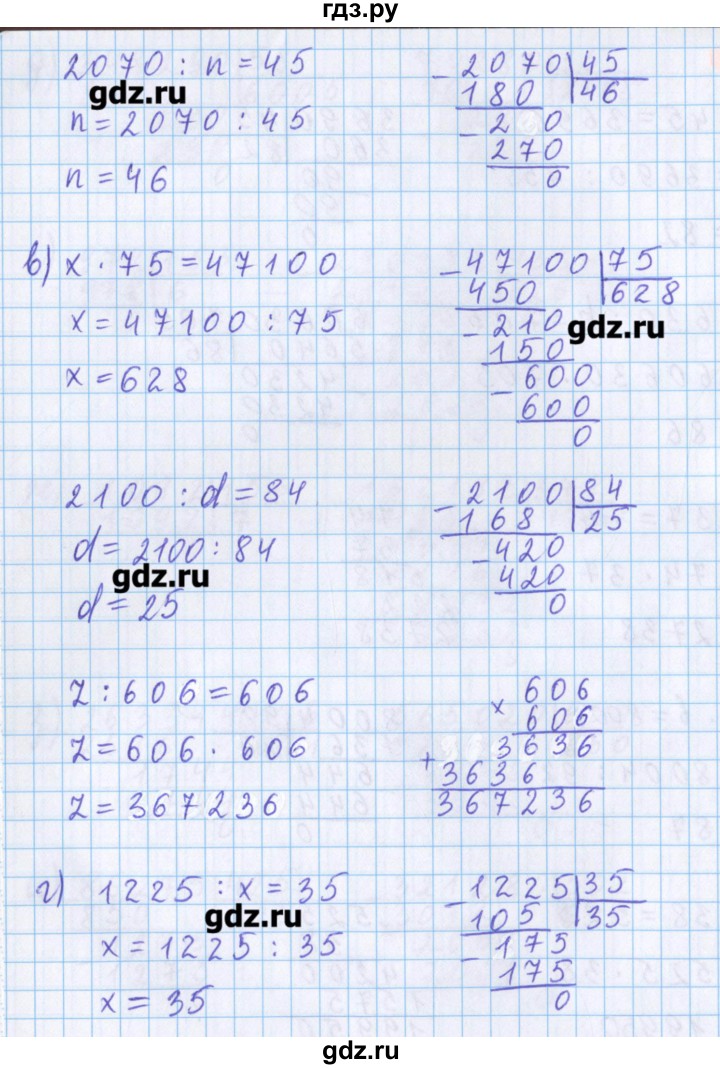 гдз.ру
2070 : n = 45
gdz.ru
n = 2070 : 45
n = 46
- 2070 | 45
180 | 46
- 2 0
270
0
в) x · 75 = 47100
x = 47100 : 75
x = 628
- 47100 | 75
450 | 628
- 210
gdz.ru
150
- 600
600
0
2100 : d = 84
d = 2100 : 84
gdz.ru
d = 25
- 2100 | 84
168 | 25
- 420
420
0
z : 606 = 606
z = 606 · 606
z = 367236
× 606
606
+ 3636
3636
367236
г) 1225 : x = 35
gdz.ru
x = 1225 : 35
x = 35
- 1225 | 35
105 | 35
- 175
175
0
gdz.ru